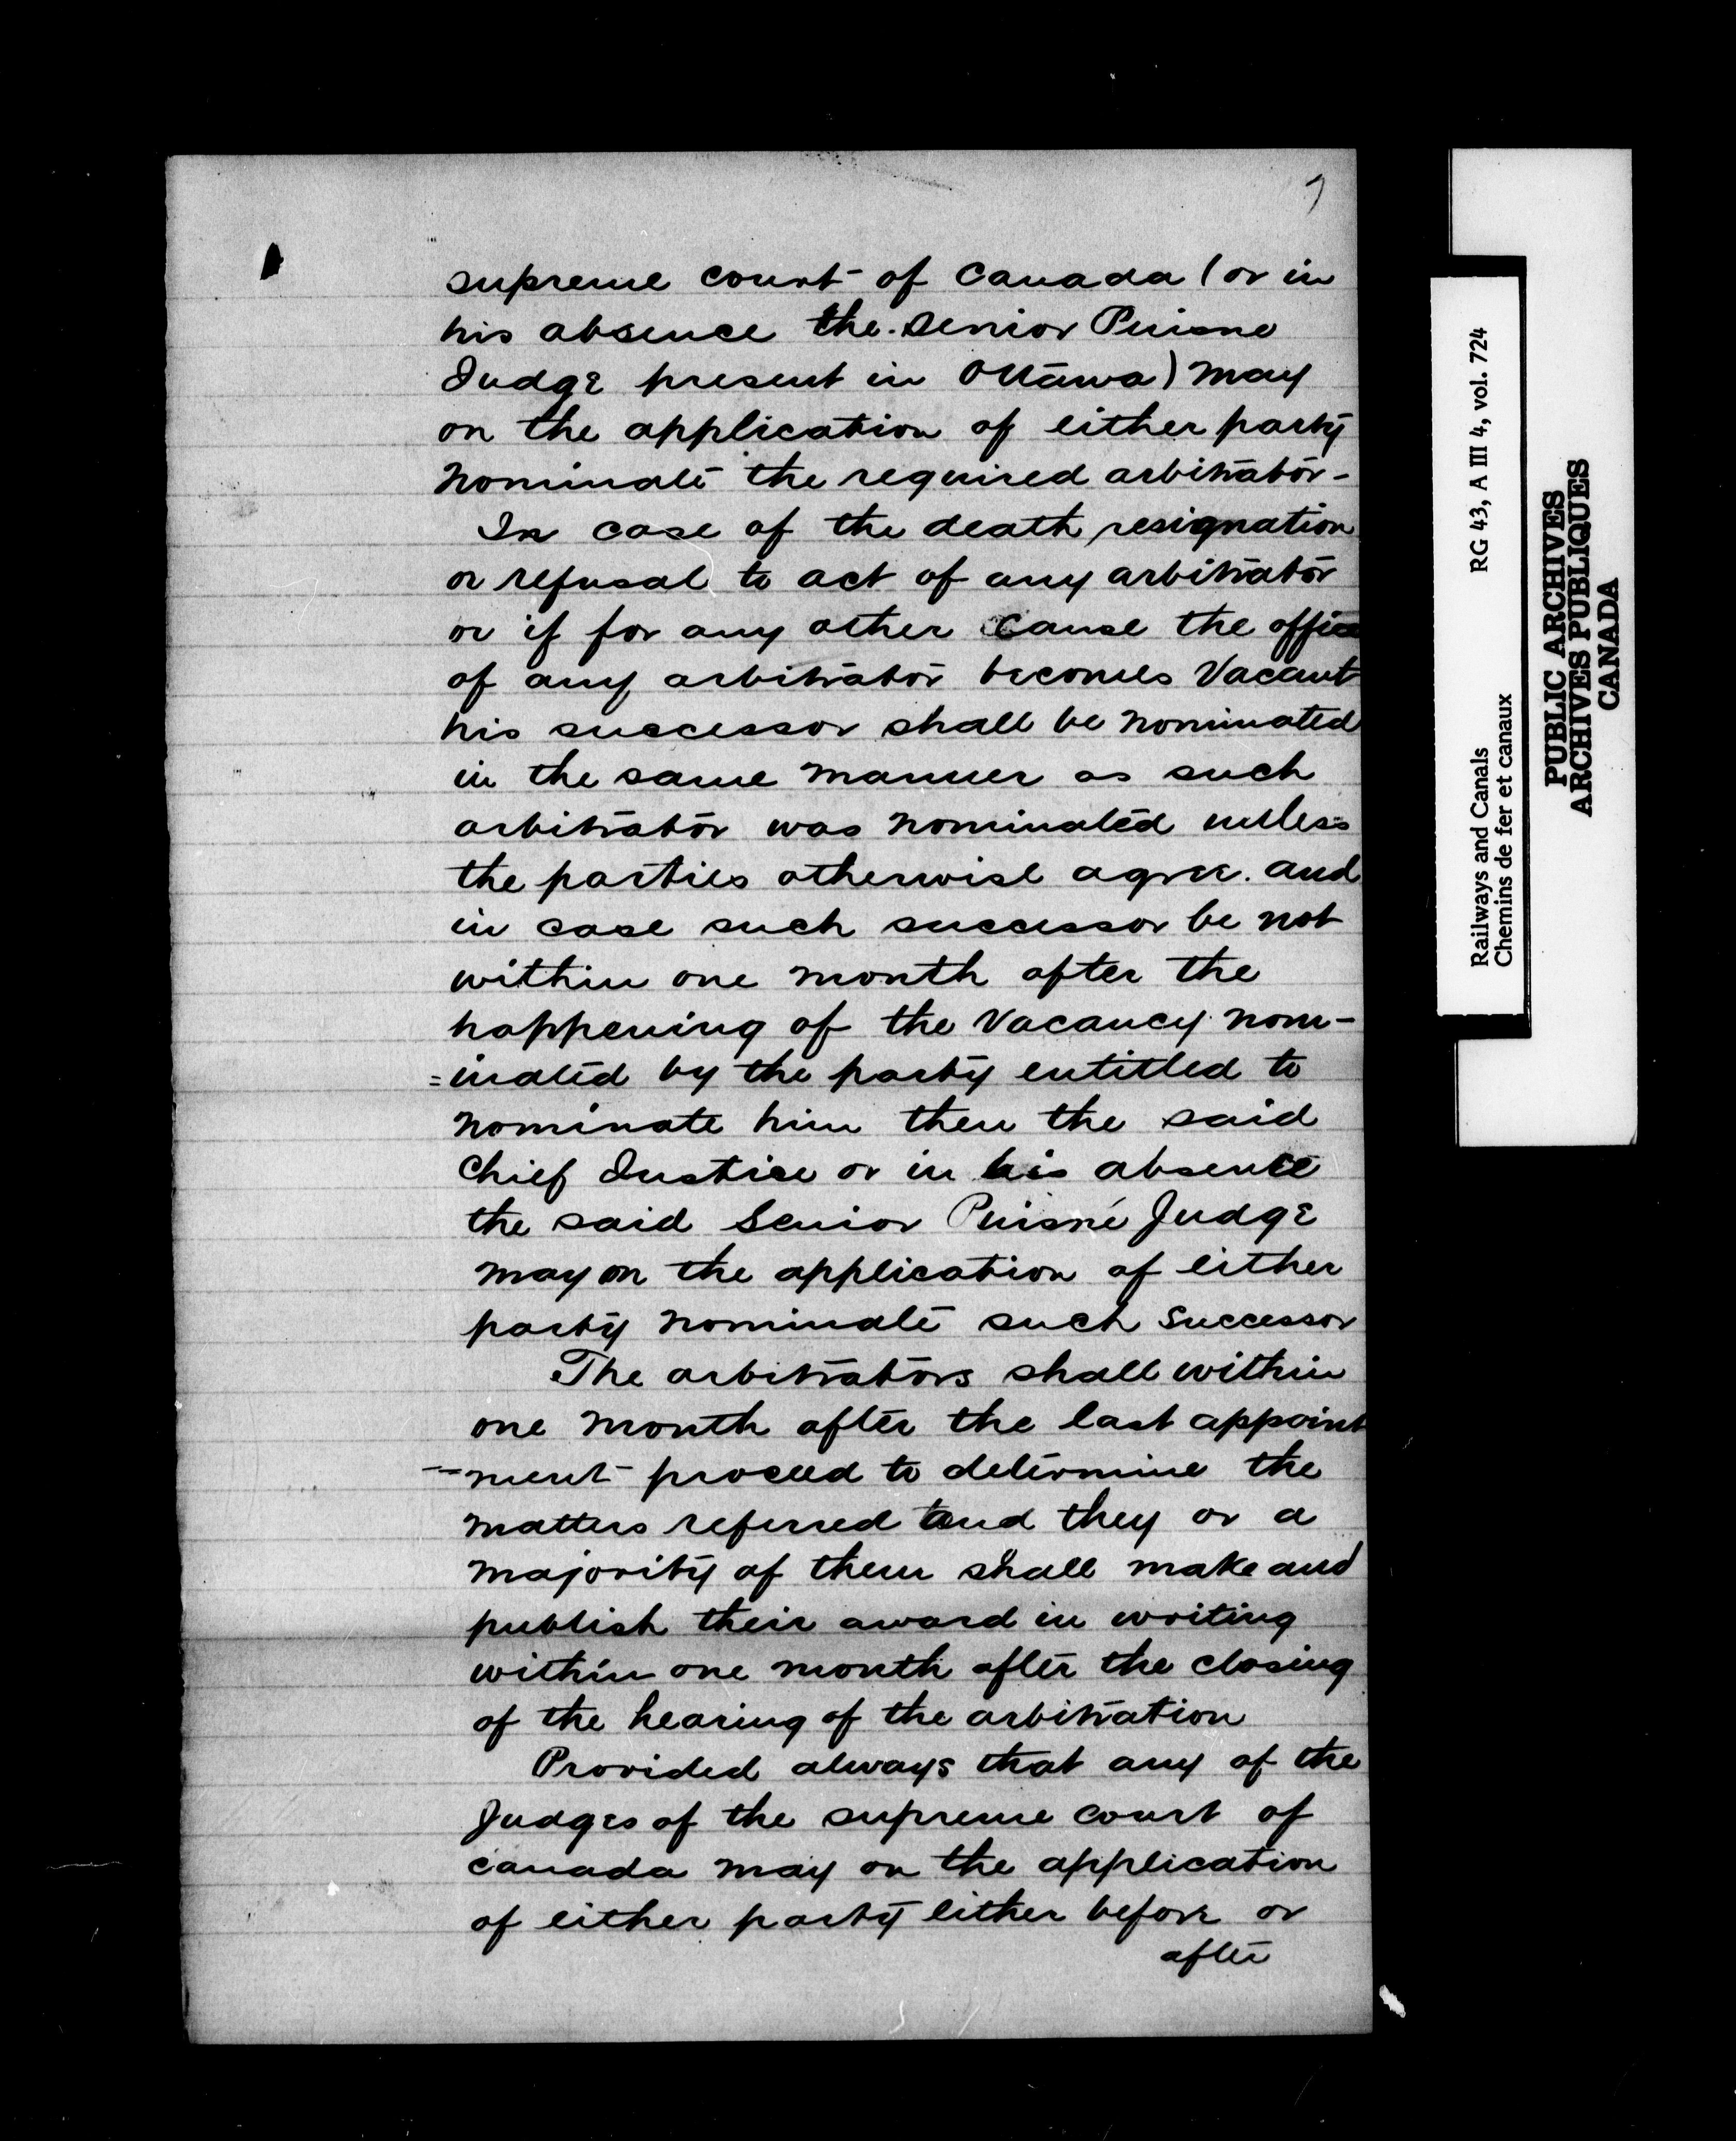 7
supreme court of Canada (or in
his absence the Senior Puisne
Judge present in Ottawa) may
on the application of either party
nominate the required arbitrator -
In case of the death resignation
or refusal to act of any arbitrator
or if for any other cause the office
of any arbitrator becomes vacant
his successor shall be nominated
in the same manner as such
arbitrator was nominated unless
the parties otherwise agree. and
in case such successor be not
within one month after the
happening of the vacancy nom-
=inated by the party entitled to
nominate him then the said
Chief Justice or in his absence
the said Senior Puisné Judge
may on the application of either
party nominate such successor
The arbitrators shall within
one month after the last appoint
-ment proceed to determine the
matters referred and they or a
majority of them shall make and
publish their award in writing
within one month after the closing
of the hearing of the arbitration
Provided always that any of the
Judges of the supreme court of
Canada may on the application
of either party either before or
after
Railways and Canals RG 43, A III 4, vol. 724
Chemins de fer et canaux
PUBLIC ARCHIVES
ARCHIVES PUBLIQUES
CANADA